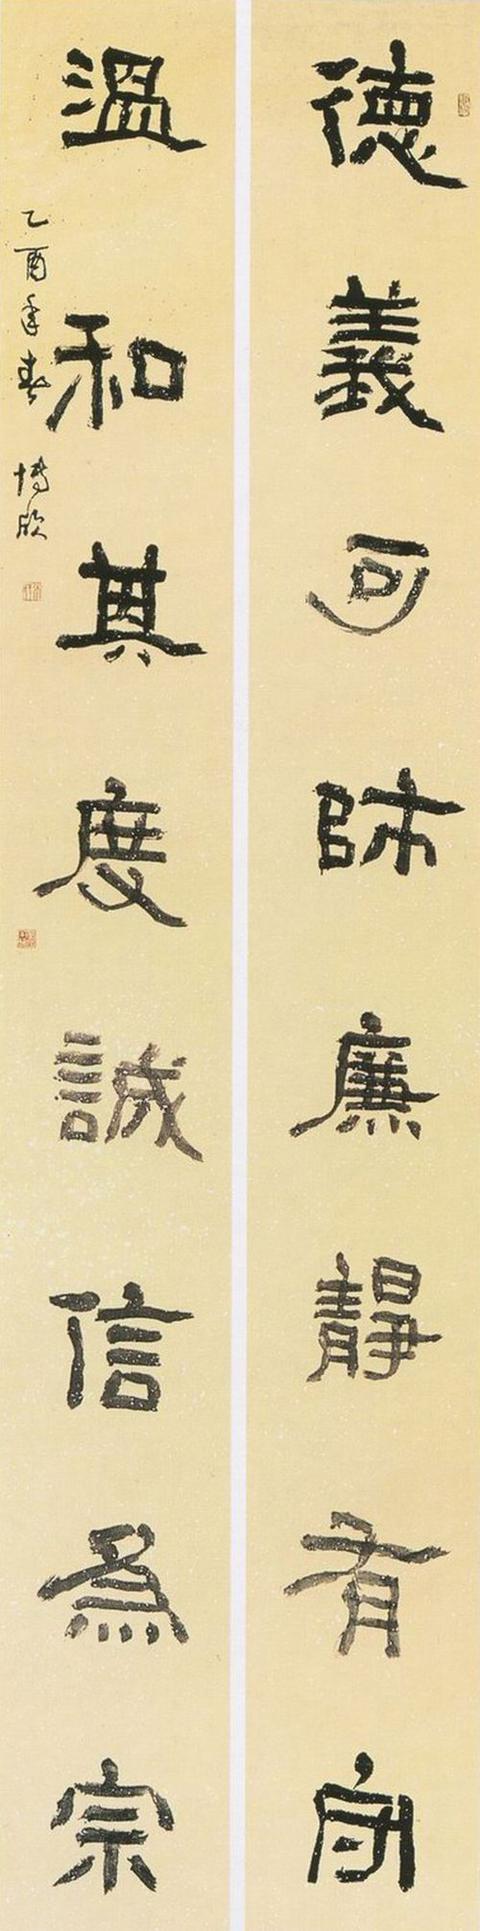 德義可師廉靜有守
溫和其度誠信為宗
乙酉年春 博欣